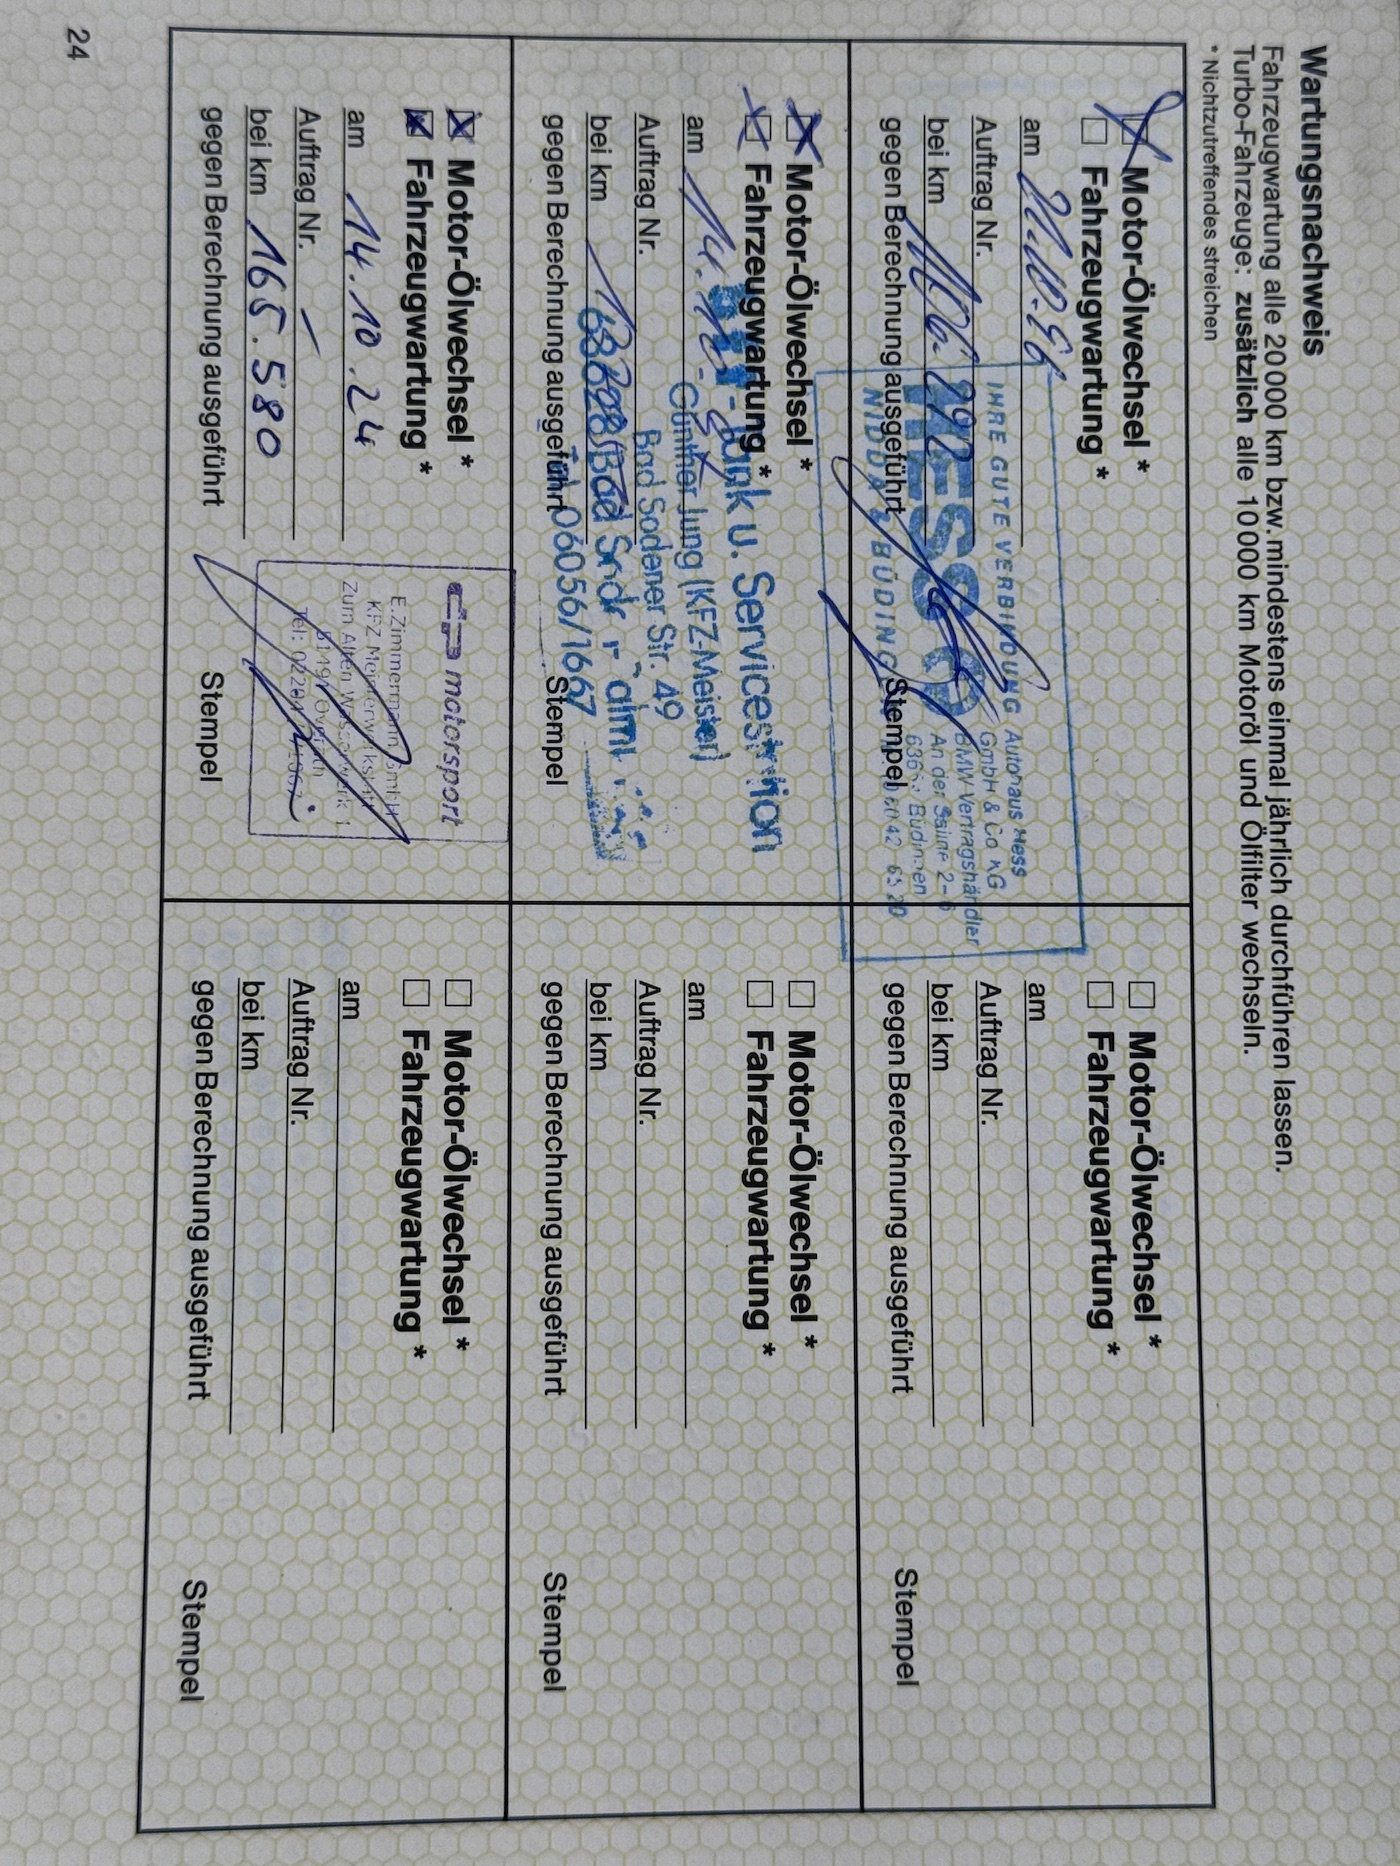 Wartungsnachweis
Fahrzeugwartung alle 20000 km bzw. mindestens einmal jährlich durchführen lassen.
Turbo-Fahrzeuge: zusätzlich alle 10000 km Motoröl und Ölfilter wechseln.
* Nichtzutreffendes streichen
Motor-Ölwechsel *
Fahrzeugwartung *
am
Auftrag Nr.
bei km
gegen Berechnung ausgeführt
Stempel
IHRE GUTE VERBINDUNG
HESS
NIDDA & BÜDINGEN
Autohaus Hess
GmbH & Co KG
BMW Vertragshändler
An der Saline 2-6
Büdingen
Motor-Ölwechsel *
Fahrzeugwartung *
am
Auftrag Nr.
bei km
gegen Berechnung ausgeführt
Stempel
Motor-Ölwechsel *
Fahrzeugwartung *
am
Auftrag Nr.
bei km
gegen Berechnung ausgeführt
Stempel
u. Servicestation
Günther Jung (KFZ-Meister)
Bad Sodener Str. 49
Bad
06056/1667
Motor-Ölwechsel *
Fahrzeugwartung *
am
Auftrag Nr.
bei km
gegen Berechnung ausgeführt
Stempel
Motor-Ölwechsel *
Fahrzeugwartung *
am 14.10.24
Auftrag Nr. —
bei km 165.580
gegen Berechnung ausgeführt
Stempel
motorsport
E. Zimmermann GmbH
KFZ Meisterwerkstatt
Zum Alten Wasserwerk 1
Overath
Tel:
Motor-Ölwechsel *
Fahrzeugwartung *
am
Auftrag Nr.
bei km
gegen Berechnung ausgeführt
Stempel
24